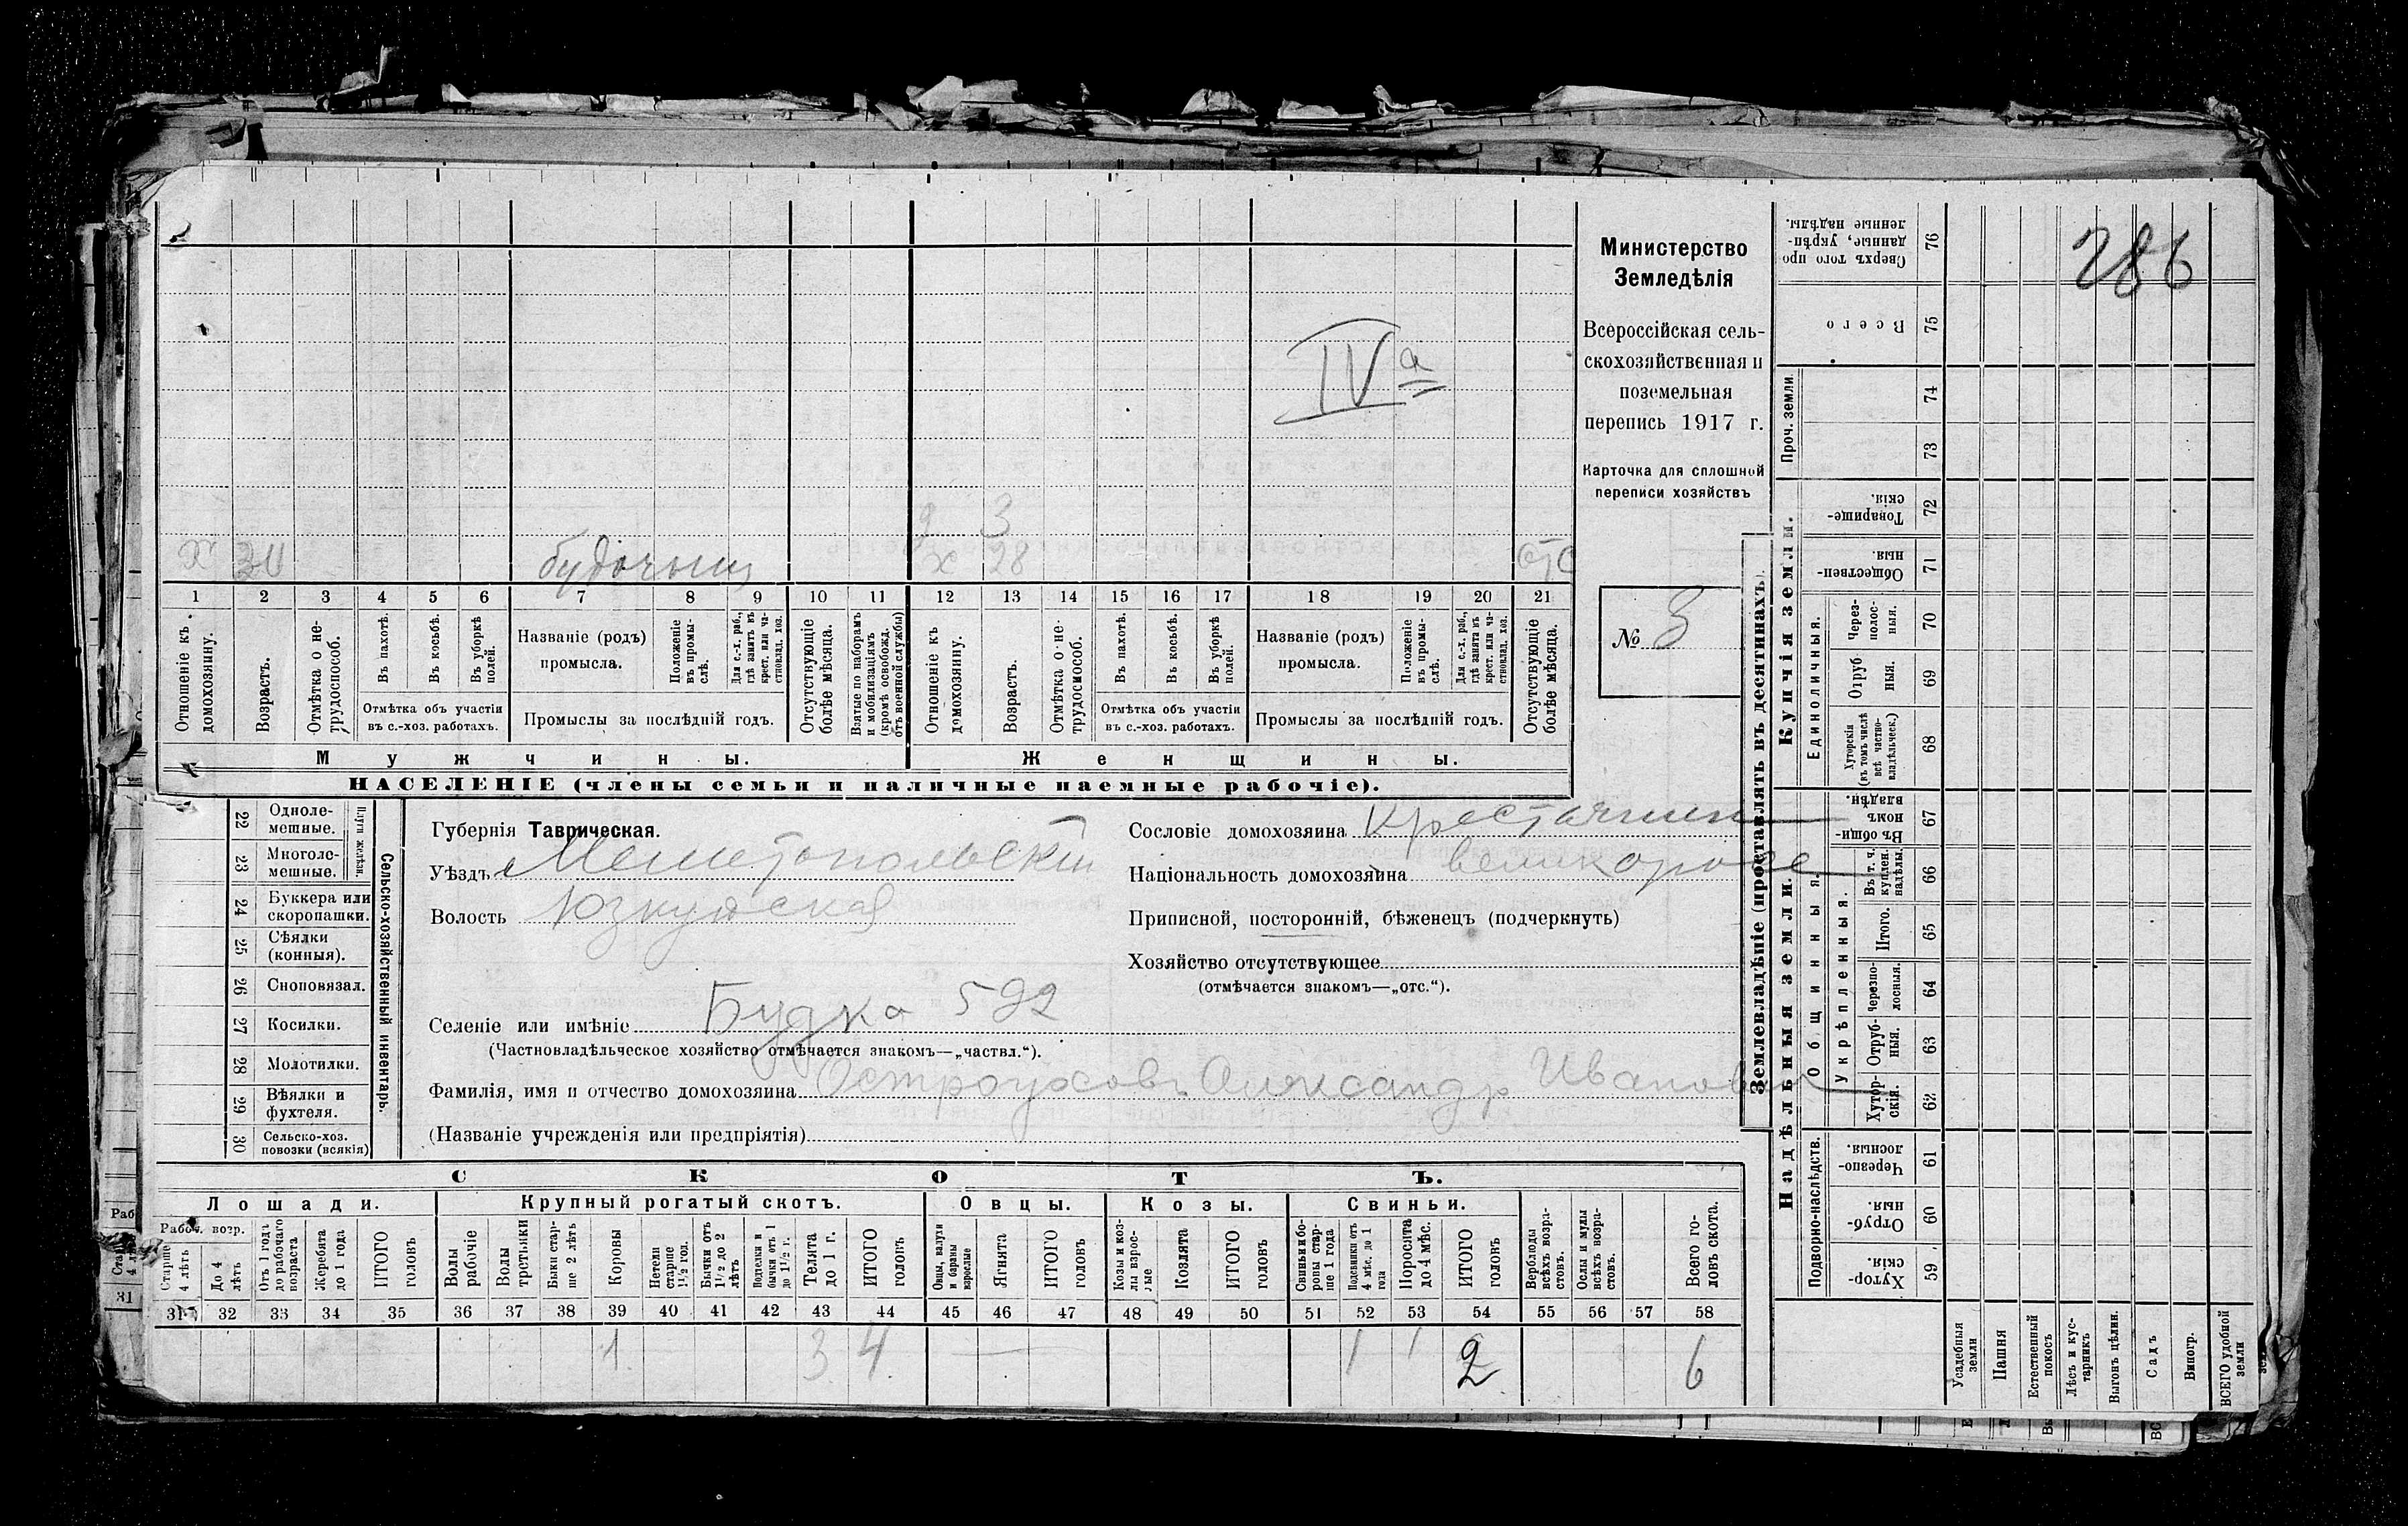 286
IV а
Министерство
Земледѣлія
Всероссійская сель-
скохозяйственная и
поземельная
перепись 1917 г.
Карточка для сплошной
переписи хозяйствъ
№ 3
д 3
х 30 будочник х 28 отс
1 2 3 4 5 6 7 8 9 10 11 12 13 14 15 16 17 18 19 20 21
Отношеніе къ домохозяину.
Возрастъ.
Отмѣтка о не-трудоспособ.
Въ пахотѣ.
Въ косьбѣ.
Въ уборкѣ полей.
Отмѣтка объ участіи въ с.-хоз. работахъ.
Названіе (родъ) промысла.
Положеніе въ промы-слѣ.
Для с.-х. раб., гдѣ занятъ въ крест. или ча-стновлад. хоз.
Промыслы за послѣдній годъ.
Отсутствующіе болѣе мѣсяца.
Взятые по наборамъ и мобилизаціямъ (кромѣ освобожд. отъ военной службы)
Отношеніе къ домохозяину.
Возрастъ.
Отмѣтка о не-трудоспособ.
Въ пахотѣ.
Въ косьбѣ.
Въ уборкѣ полей.
Отмѣтка объ участіи въ с.-хоз. работахъ.
Названіе (родъ) промысла.
Положеніе въ промы-слѣ.
Для с.-х. раб., гдѣ занятъ въ крест. или ча-стновлад. хоз.
Промыслы за послѣдній годъ.
Отсутствующіе болѣе мѣсяца.
Мужчины. Женщины.
НАСЕЛЕНІЕ (члены семьи и наличные наемные рабочіе).
Сельско-хозяйственный инвентарь.
Плуги желѣзн.
22 Одноле-мешные.
23 Многоле-мешные.
24 Буккера или скоропашки.
25 Сѣялки (конныя).
26 Сноповязал.
27 Косилки.
28 Молотилки.
29 Вѣялки и фухтеля.
30 Сельско-хоз. повозки (всякія)
Губернія Таврическая.
Уѣздъ Мелитопольскій
Волость Юзкуйская
Селеніе или имѣніе Будка 592
(Частновладѣльческое хозяйство отмѣчается знакомъ—„частвл.“).
Фамилія, имя и отчество домохозяина Остроухов Александр Иванович
(Названіе учрежденія или предпріятія)
Сословіе домохозяина крестьянин
Національность домохозяина великоросс
Приписной, посторонній, бѣженецъ (подчеркнуть)
Хозяйство отсутствующее
(отмѣчается знакомъ—„отс.“).
СКОТЪ.
Лошади. Крупный рогатый скотъ. Овцы. Козы. Свиньи.
Рабоч. возр.
Старше 4 лѣтъ
До 4 лѣтъ
Отъ 1 года до рабочаго возраста
Жеребята до 1 года
ИТОГО головъ
Волы рабочіе
Волы третьяки
Быки стар-ше 2 лѣтъ
Коровы
Нетели старше 1½ год.
Бычки отъ 1½ до 2 лѣтъ
Водтелки и бычки отъ 1 до 1½ г.
Телята до 1 г.
ИТОГО головъ
Овцы, валухи и бараны взрослые
Ягнята
ИТОГО головъ
Козы и коз-лы взрос-лые
Козлята
ИТОГО головъ
Свиньи и бо-ровы стар-ше 1 года
Подсвинки отъ 4 мѣс. до 1 года
Поросята до 4 мѣс.
ИТОГО головъ
Верблюды всѣхъ возра-стовъ.
Ослы и мулы всѣхъ возра-стовъ.
Всего го-ловъ скота.
31 32 33 34 35 36 37 38 39 40 41 42 43 44 45 46 47 48 49 50 51 52 53 54 55 56 57 58
1 3 4 1 1 2 6
Землевладѣніе (проставлять въ десятинахъ).
Купчія земли.
Надѣльныя земли.
Сверхъ того про-данные, укрѣп-ленные надѣлы. 76
Всего 75
Проч. земли. 74
73
Товарище-скія. 72
Обществен-ныя. 71
Единоличныя.
Через-полос-ныя. 70
Отруб-ныя. 69
Хуторскія (въ томъ числѣ всѣ частно-владѣльческ.) 68
Общинныя.
Въ общин-номъ владѣн. 67
Укрѣпленныя.
Въ т. ч. куплен. надѣлы. 66
Итого. 65
Черезпо-лосныя. 64
Отруб-ныя. 63
Хутор-скія. 62
Подворно-наслѣдств.
Черезпо-лосныя 61
Отруб-ныя. 60
Хутор-скія. 59
Усадебныя земли
Пашня
Естественный покосъ
Лѣсъ и кус-тарникъ
Выгонъ цѣлин.
Садъ
Виногр.
ВСЕГО удобной земли